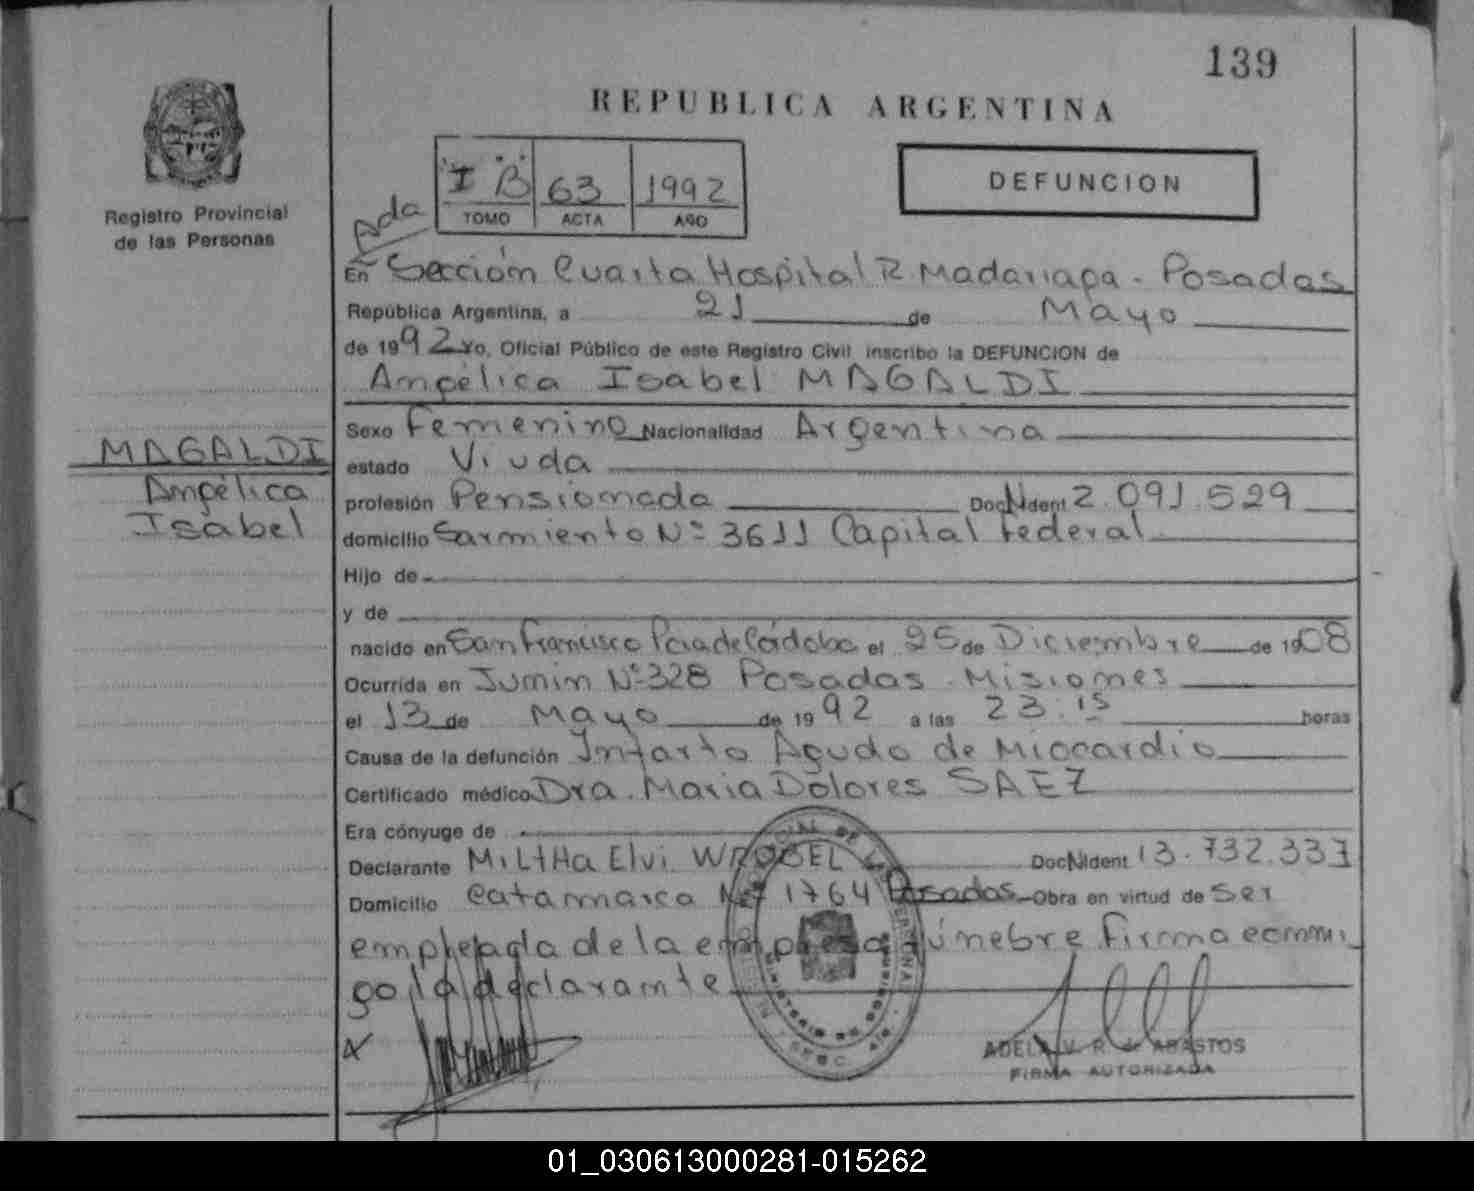 139
REPUBLICA ARGENTINA
Registro Provincial
de las Personas
I "B" 63 1992
TOMO ACTA AÑO
DEFUNCION
Ada
En Sección Cuarta Hospital R. Madariaga - Posadas
República Argentina, a 21 de Mayo
de 1992 yo, Oficial Público de este Registro Civil inscribo la DEFUNCION de
Angélica Isabel MAGALDI
Sexo Femenino Nacionalidad Argentina
MAGALDI
Angélica
Isabel
estado Viuda
profesión Pensionada Doc N Ident 2.091.529
domicilio Sarmiento Nº 3611 Capital Federal
Hijo de
y de
nacido en San Francisco Pcia de Córdoba el 25 de Diciembre de 1908
Ocurrida en Junin Nº 328 Posadas - Misiones
el 13 de Mayo de 1992 a las 23.15 horas
Causa de la defunción Infarto Agudo de Miocardio
Certificado médico Dra. Maria Dolores SAEZ
Era cónyuge de
Declarante Miltha Elvi WROBEL Doc N Ident 13.732.337
Domicilio Catamarca Nº 1764 Posadas Obra en virtud de Ser
empleada de la empresa fúnebre firma conmi
go la declarante
ADELA V. R. de ABASTOS
FIRMA AUTORIZADA
01_030613000281-015262